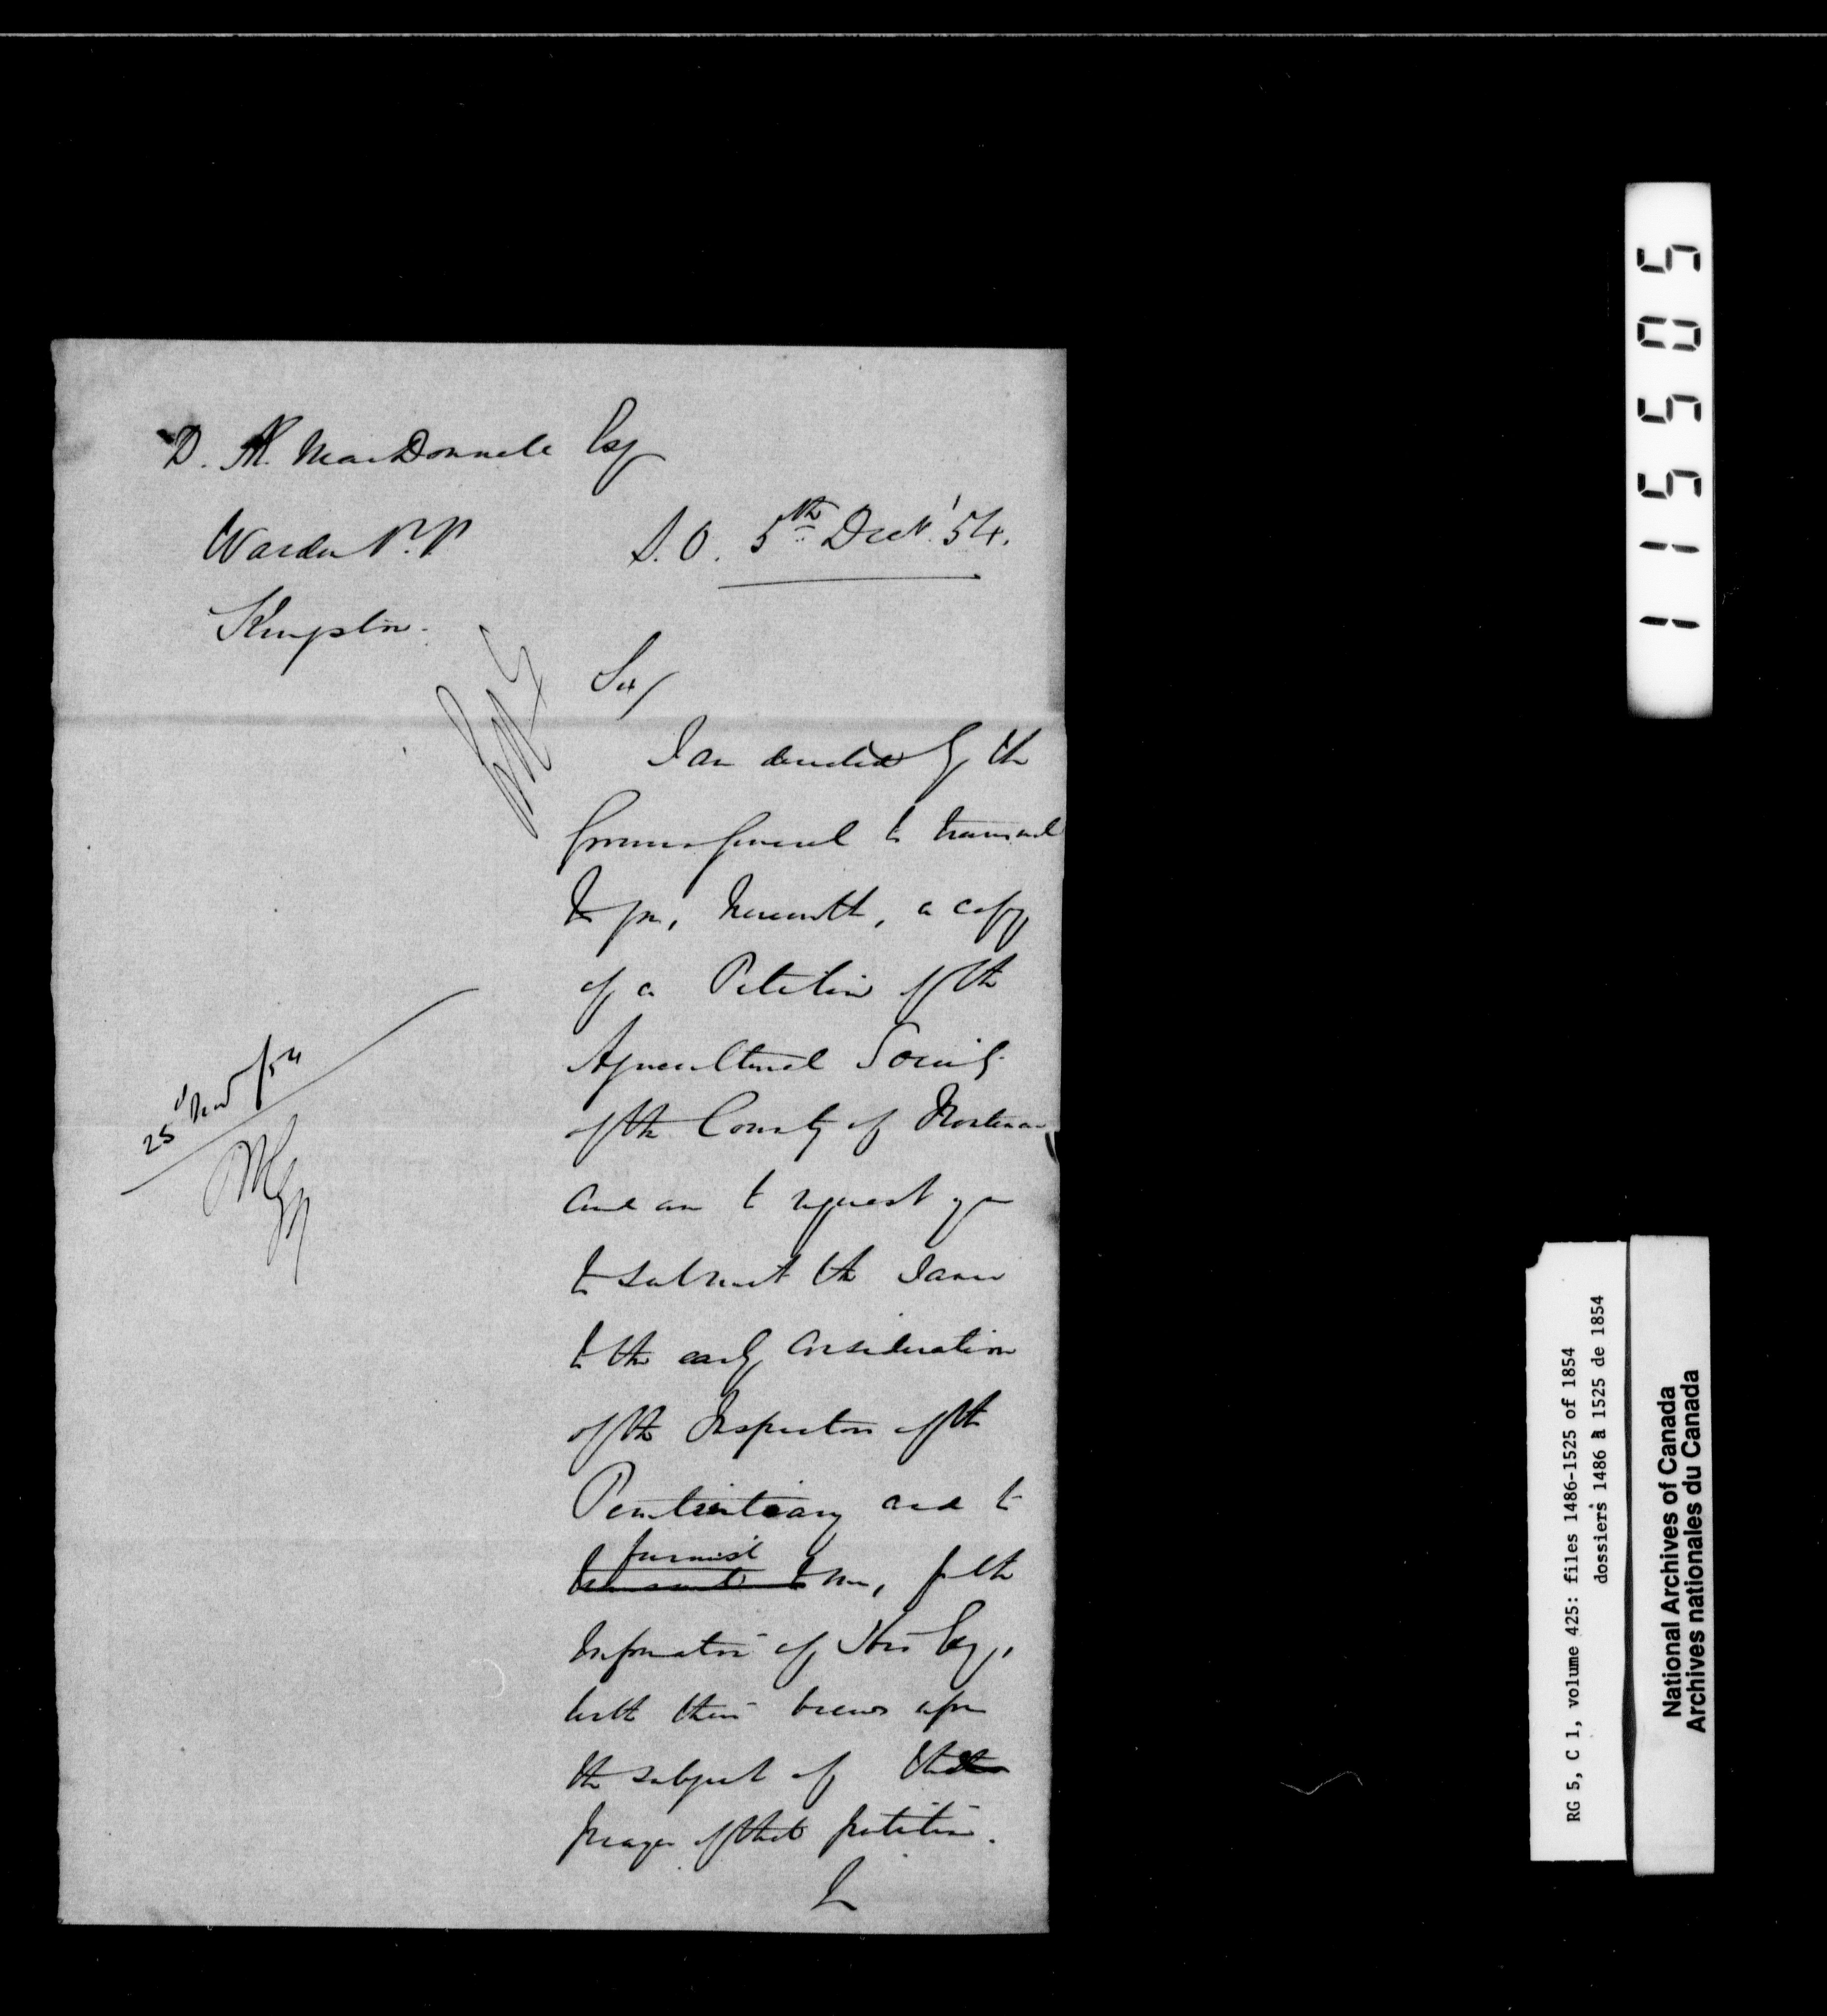 D. Æ. MacDonnell Esq
Warden P. P
S. O. 5th Decr. '54.
Kingston.
Sir/
I am directed by the
Governor General to transmit
to you, herewith, a copy
of a Petition of the
Agricultural Society
of the County of Frontenac
and am to request you
to submit the same
to the early consideration
of the Inspectors of the
Penitentiary and to
furnish
transmit to me, for the
information of His Exy,
with their views upon
the subject of the
prayer of that petition.
I
25 Nov /54
115505
RG 5, C 1, volume 425: files 1486-1525 of 1854
dossiers 1486 à 1525 de 1854
National Archives of Canada
Archives nationales du Canada